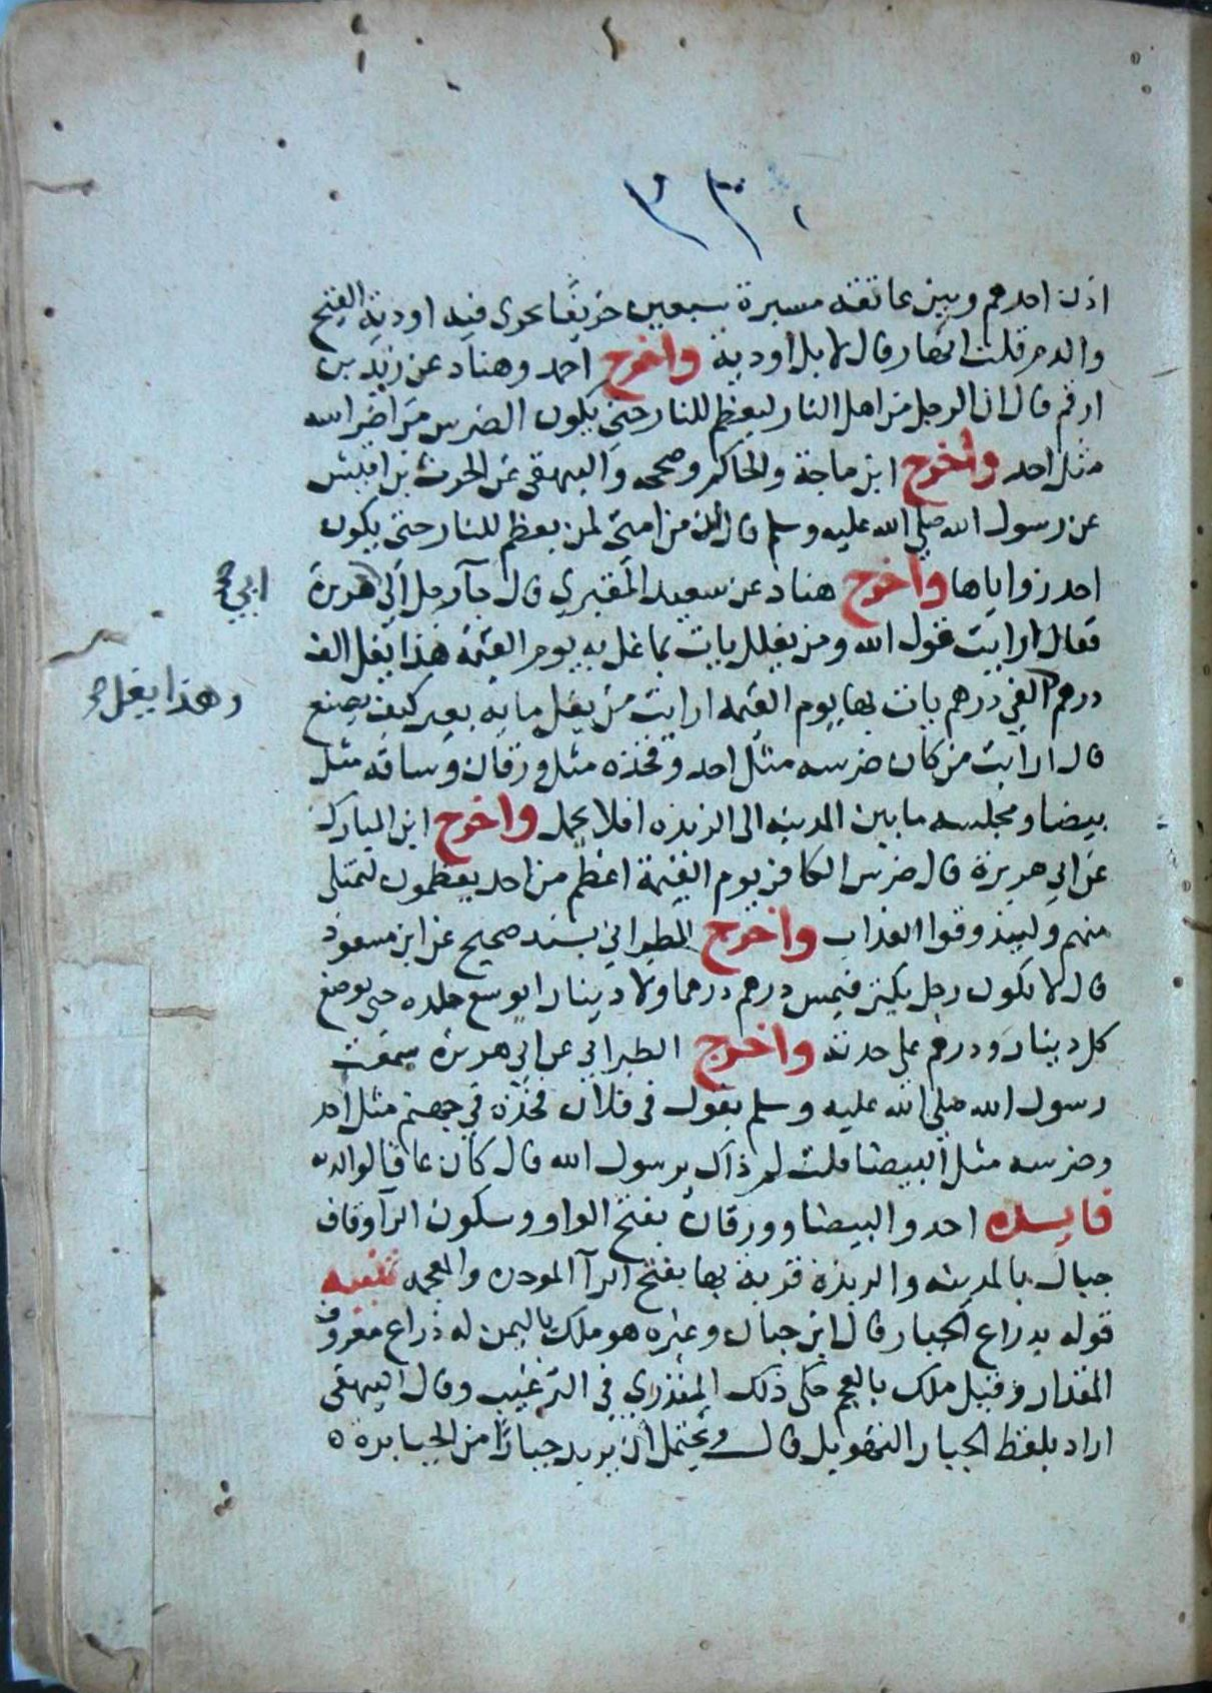 ٣٣٠
اذن احدهم وبين عاتقه مسيرة سبعين خريفا يجري فيه اودية القيح
والدم قلت انهار قال لا بل اودية واخرج احمد وهناد عن زيد بن
ارقم قال ان الرجل من اهل النار ليعظم للنار حتى يكون الضرس من اضراسه
مثل احد واخرج ابن ماجة والحاكم وصححه والبيهقي عن الحرث بن اقيش
عن رسول الله صلى الله عليه وسلم قال ان من امتي لمن يعظم للنار حتى يكون
احد زواياها واخرج هناد عن سعيد المقبري قال جآ رجل الى هريرة
ابي صح
فقال ارايت قول الله ومن يغلل يات بما غل يوم القيمة هذا يغل الف
درهم الفي درهم يات بها يوم القيمه ارايت من يغل مايه بعير كيف يصنع
وهذا يغل صح
قال ارايت من كان ضرسه مثل احد وفخذه مثل ورقان وساقه مثل
بيضا ومجلسه ما بين المدينه الى الربذه افلا يحمل واخرج ابن المبارك
عن ابي هريرة قال ضرس الكافر يوم القيمة اعظم من احد يعظمون لتمتلى
منهم وليذوقوا العذاب واخرج الطبراني بسند صحيح عن ابن مسعود
قال لا يكون رجل يكنز فيمس درهم درهما ولا دينارا يوسع جلده حتى يوضع
كل دينار ودرهم على حدته واخرج الطبراني عن ابي هريرة سمعت
رسول الله صلى الله عليه وسلم يقول في فلان فخذه في جهنم مثل احد
وضرسه مثل البيضا قلت لم ذاك يرسول الله قال كان عاقا لوالديه
فايده احد والبيضا وورقان بفتح الواو وسكون الرآ وقاف
جبال بالمدينه والربذة قرية بها بفتح الرآ الموحده والمعجمه تنبيه
قوله بذراع الجبار قال ابن حبان وغيره هو ملك باليمن له ذراع معروف
المقدار وقيل ملك بالعجم حكى ذلك المنذري في الترغيب وقال البيهقي
اراد بلفظ الجبار التهويل قال ويحتمل ان يريد جبارا من الجبابرة ه